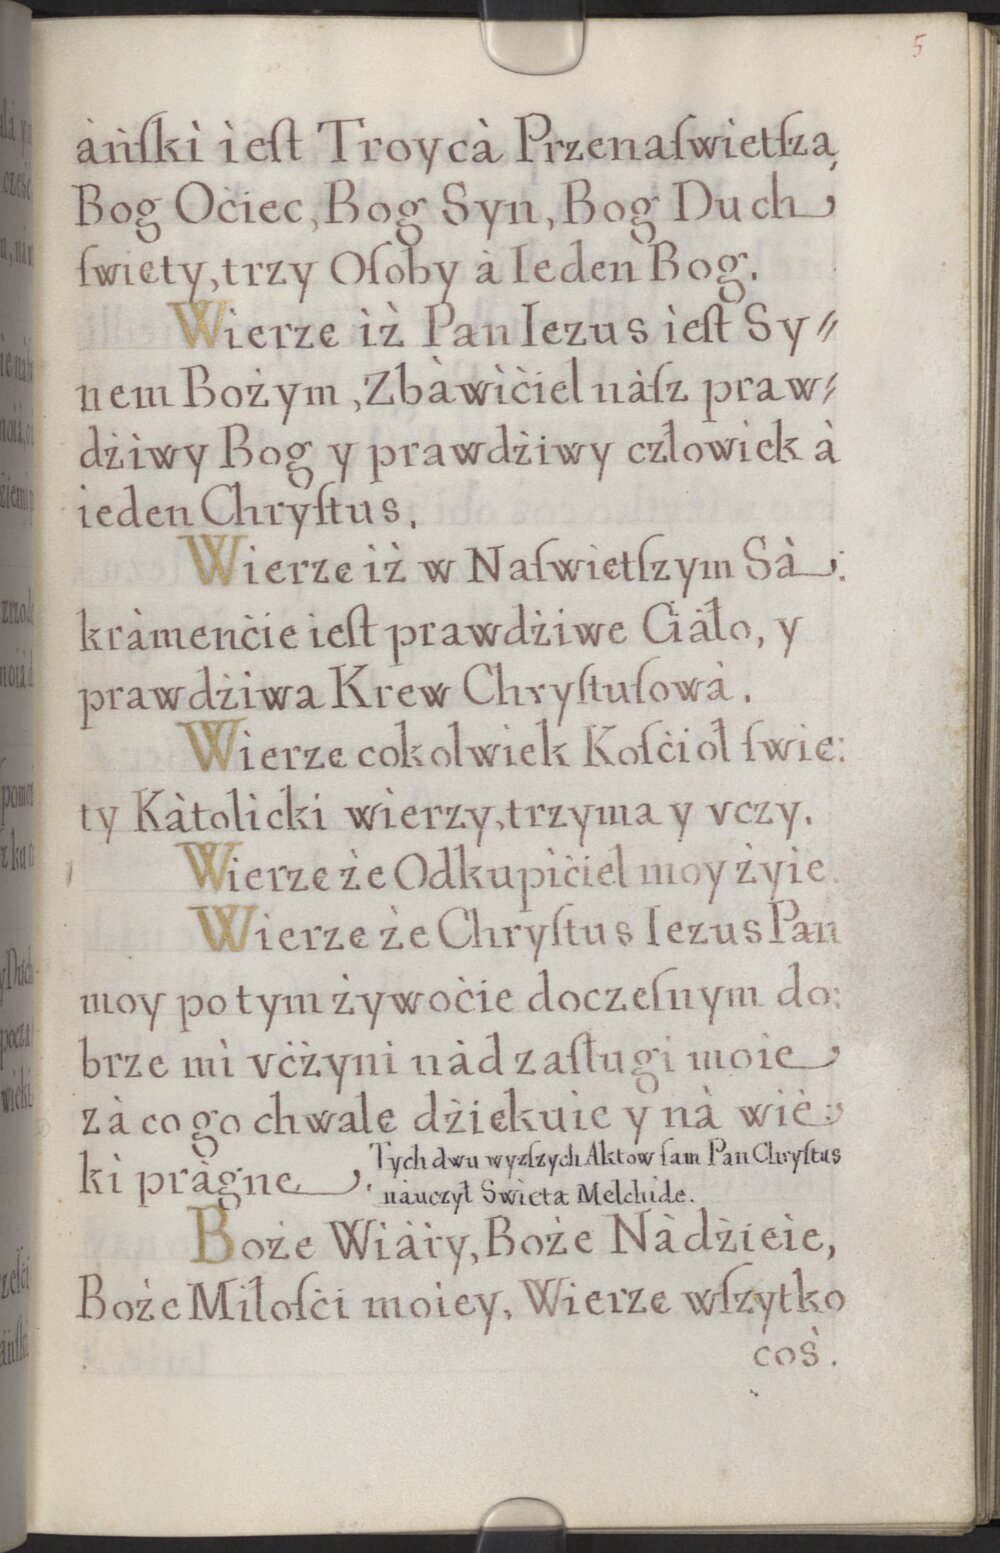 5
àńſkì ìeſt Troycà Przenaſwietſzą
Bog Oċiec, Bog Syn, Bog Duch
ſwięty, trzy Oſoby à Ieden Bog.
Wierzę iż Pan Iezus ieſt Sy⸗
nem Bożym, Zbàwiċiel nàſz praw⸗
dżiwy Bog y prawdżiwy człowiek à
ieden Chryſtus.
Wierzę iż w Naſwietſzym Sà:
kràmenċie ieſt prawdżiwe Ċiàło, y
prawdżiwa Krew Chryſtuſowà.
Wierzę cokolwiek Koſċioł ſwię:
ty Kàtolicki wierzy, trzyma y vczy.
Wierzę że Odkupiċiel moy żyie.
Wierzę że Chryſtus Iezus Pan
moy po tym żywoċie doczeſnym do:
brze mi vċżyni nàd zaſługi moie
zà co go chwalę dżiękuię y nà wie:
ki pràgnę.
Tych dwu wyzſzych Aktow ſam Pan Chryſtus
nàuczył Swiętą Melchidę.
Boże Wiàry, Boże Nàdżieie,
Boże Miłoſċi moiey, Wierzę wſzytko
coś.